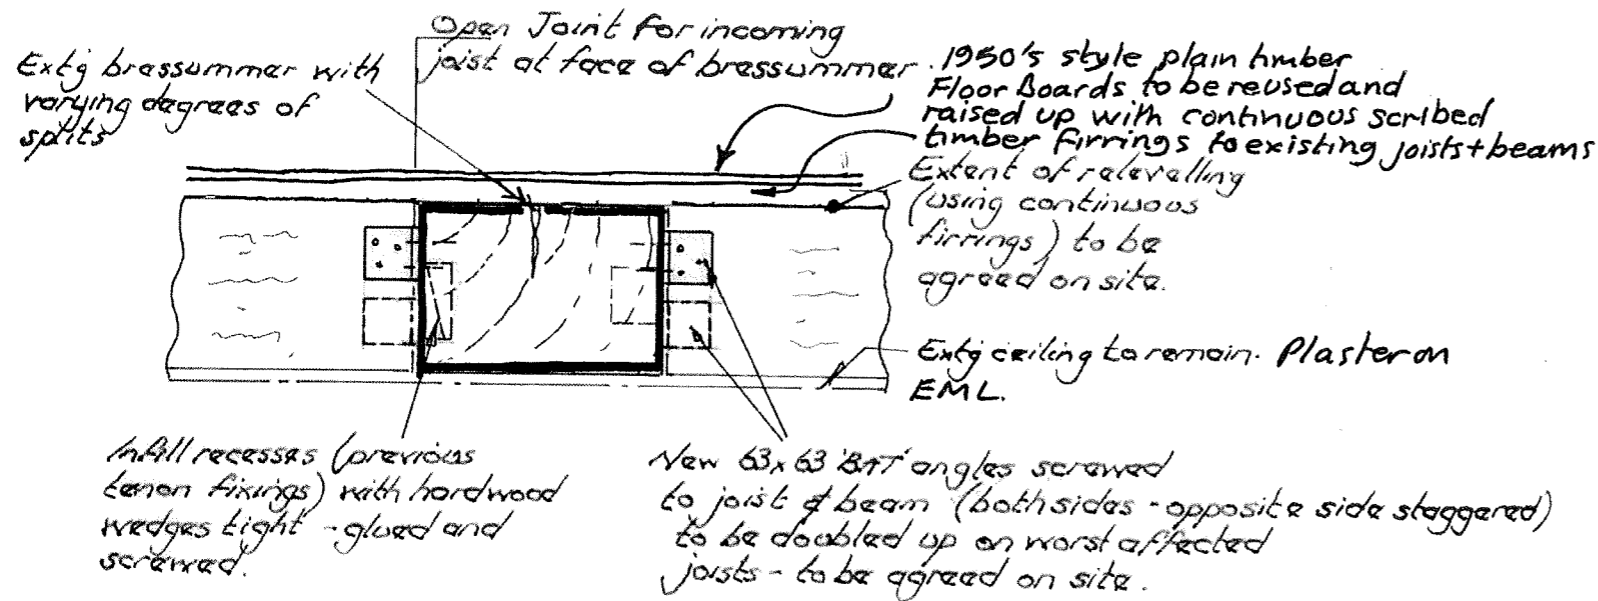 Open Joint for incoming
joist at face of bressummer.
Extg bressummer with
varying degrees of
splits
1950's style plain timber
Floor Boards to be reused and
raised up with continuous scribed
timber firrings to existing joists + beams
Extent of relevelling
(using continuous
firrings) to be
agreed on site.
Extg ceiling to remain. Plaster on
EML.
Infill recesses (previous
tenon fixings) with hardwood
wedges tight - glued and
screwed.
New 63x63 'BAT' angles screwed
to joist & beam (both sides - opposite side staggered)
to be doubled up on worst affected
joists - to be agreed on site.